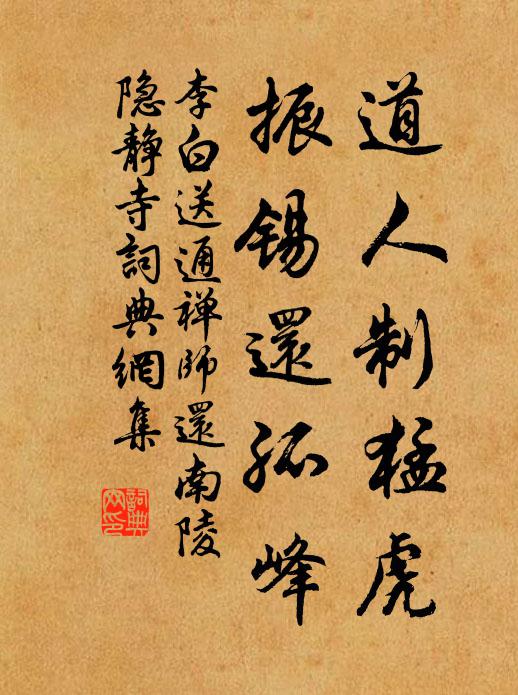 道人制猛虎
振锡還孤峰
李白送通禅师還南陵
隐静寺詞典網集
詞典
网印